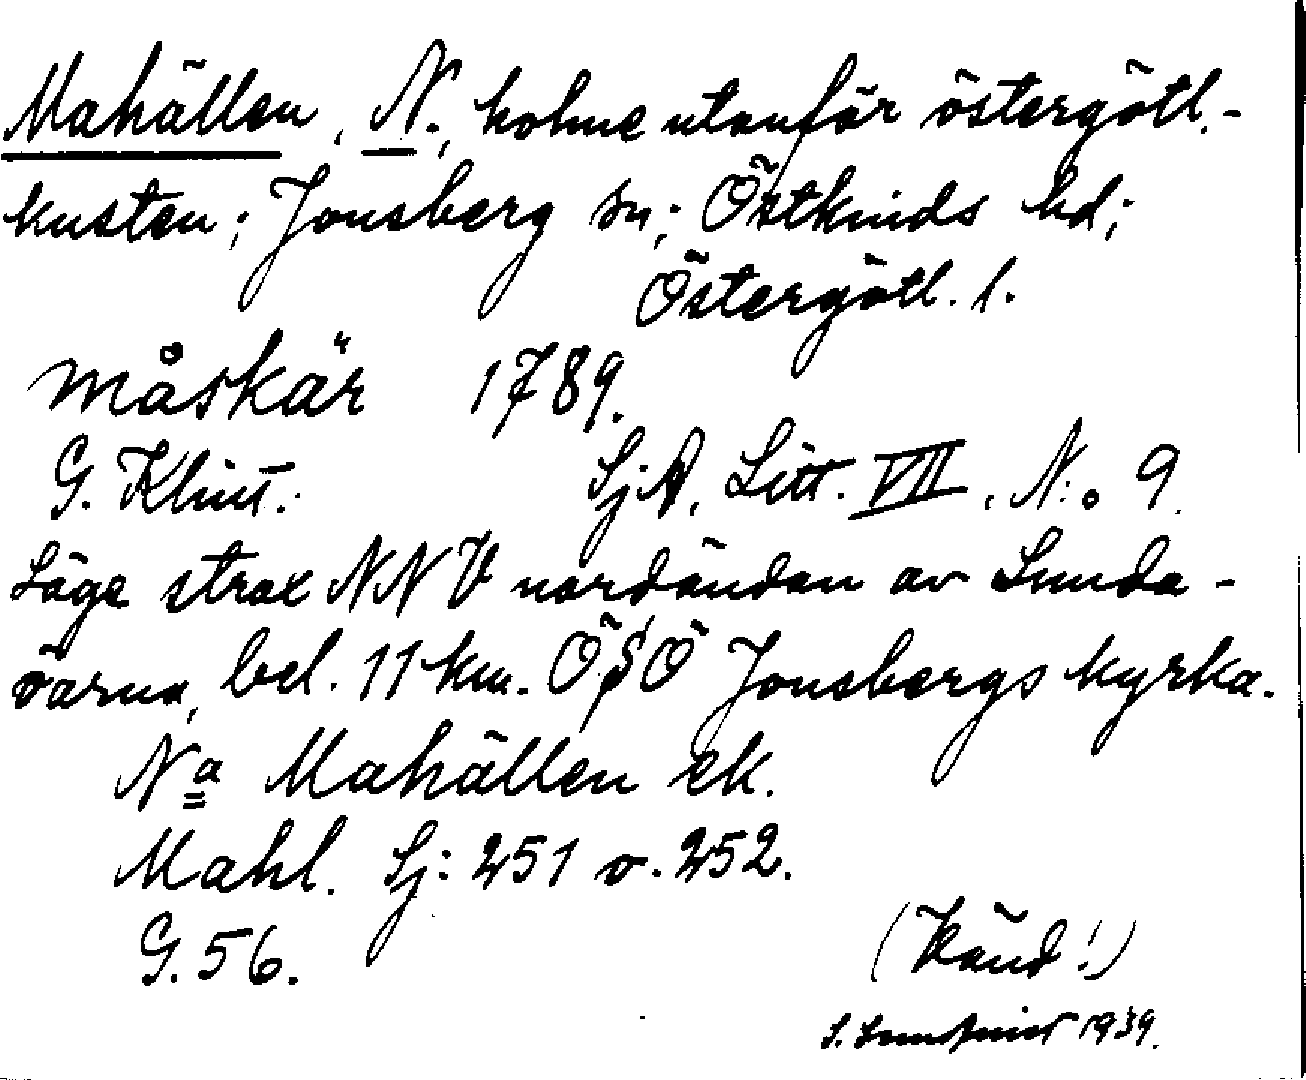 Mahällen, N., holme utanför östergötl.-
kusten; Jonsberg sn; Östkinds hd;
Östergötl. l.
måskär 1789.
G. Klint: SjA, Litt. VII, N:o 9.
Läge strax NNV nordändan av Lunda-
öarna, bel. 11 km. ÖSÖ Jonsbergs kyrka.
Na Mahällen ek.
Mahl. Sj: 251 o. 252.
G. 56.
(Känd!)
S. 1939.